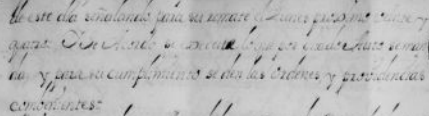 de este dia señalando para su remate el Lunes proximo veinte y
quatro: Dixo Acordó se execute lo que por dicho Auto se man
da, y para su cumplimiento se den las ordenes y providencias
combenientes: